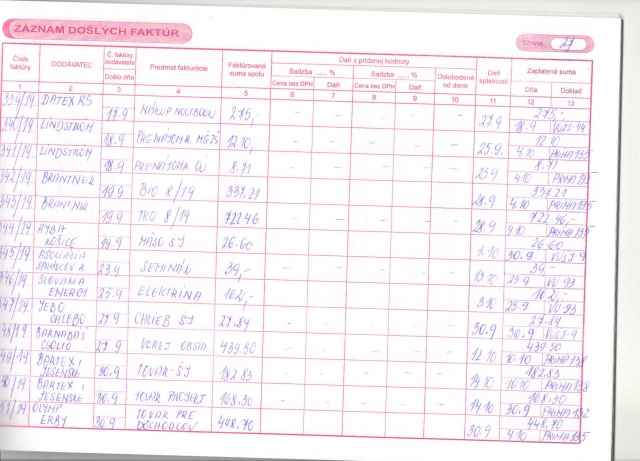 ZÁZNAM DOŠLÝCH FAKTÚR
Strana: 27
Číslo faktúry DODÁVATEĽ Č. faktúry dodávateľa Došlo dňa Predmet fakturácie Faktúrovaná suma spolu Daň z pridanej hodnoty Sadzba ...... % Cena bez DPH Daň Sadzba ...... % Cena bez DPH Daň Oslobodené od dane Daň splatnosti Zaplatená suma Dňa Doklad
1 2 3 4 5 6 7 8 9 10 11 12 13
339/19 DATEX KS 17.9 275,- 27.9 275,- 18.9
340/19 LINDSTRÖM 18.9 12.10 25.9. 12.10 4.10 PRIMA 135
341/19 LINDSTRÖM 18.9 8.71 23.9 8.71 4.10 PRIMA 135
342/19 BRANTNER 19.9 BIO 8/19 337.21 28.9 337.21 4.10 PRIMA 135
343/19 BRANTNER 19.9 TKO 8/19 722.46 28.9 722.46,- 4.10 PRIMA 135
344/19 RYBA KOŠICE 19.9 MÄSO ŠJ 26.60 1.10 26.60 30.9 VÚŠJ-9
345/19 ASOCIÁCIA 23.9 SEMINÁR 39,- 13.10 39,- 25.9 VÚ-93
346/19 SLOVAKIA ENERGY 25.9 ELEKTRINA 162,- 3.10 162,- 25.9 VÚ-93
347/19 JEBO CHLEBO 27.9 CHLIEB ŠJ 27.84 30.9 27.84 30.9 VÚŠJ-9
348/19 BARNABÁŠ 27.9 439.50 12.10 439.50 10.10 PRIMA 138
349/19 BARTEX I JESENSKÉ 30.9 TOVAR-ŠJ 182.83 14.10 182.83 10.10 PRIMA 138
50/19 BARTEX I JESENSKÉ 30.9 TOVAR PROJEKT 168.30 14.10 168.30 30.9 PRIMA 132
51/19 OLYMP 30.9 TOVAR PRE DÔCHODCOV 448.70 30.9 448.70 4.10 PRIMA 135